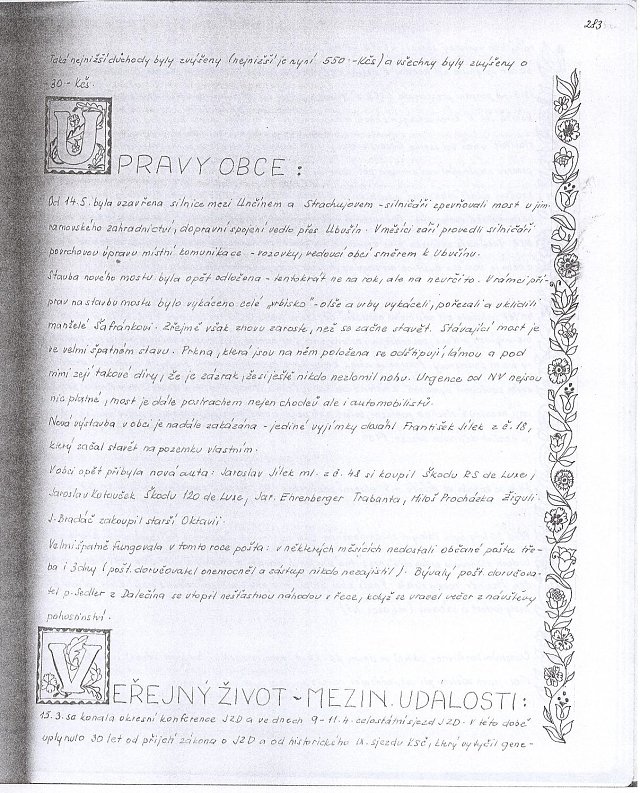 283
Také nejnižší důchody byly zvýšeny (nejnižší je nyní 550.-Kčs) a všechny byly zvýšeny o
30- Kčs.
UPRAVY OBCE :
Od 14.5. byla uzavřena silnice mezi Unčínem a Strachujovem - silničáři zpevňovali most u jim-
ramovského zahradnictví, dopravní spojení vedlo přes Ubušín. V měsíci září provedli silničáři
povrchovou úpravu místní komunikace - vozovky, vedoucí obcí směrem k Ubušínu.
Stavba nového mostu byla opět odložena - tentokrát ne na rok, ale na neurčito. V rámci pří-
prav na stavbu mostu bylo vykáceno celé „vrbisko" - olše a vrby vykáceli, pořezali a uklidili
manželé Šafránkovi. Zřejmě však znovu zaroste, než se začne stavět. Stávající most je
ve velmi špatném stavu. Prkna, která jsou na něm položena se odštipují, lámou a pod
nimi zejí takové díry, že je zázrak, že si ještě nikdo nezlomil nohu. Urgence od NV nejsou
nic platné, most je dále postrachem nejen chodců ale i automobilistů.
Nová výstavba v obci je nadále zakázána - jediné vyjímky dosáhl František Jílek z č. 18,
který začal stavět na pozemku vlastním.
V obci opět přibyla nová auta: Jaroslav Jílek ml. z č. 48 si koupil Škodu RS de Luxe,
Jaroslav Kotouček Škodu 120 de Luxe, Jar. Ehrenberger Trabanta, Miloš Procházka Žiguli.
J. Bradáč zakoupil starší Oktavii.
Velmi špatně fungovala v tomto roce pošta: v některých měsících nedostali občané poštu tře-
ba i 3 dny (pošt. doručovatel onemocněl a zástup nikdo nezajistil). Bývalý pošt. doručova-
tel p. Sedler z Dalečína se utopil nešťastnou náhodou v řece, když se vracel večer z návštěvy
pohostinství.
VEŘEJNÝ ŽIVOT - MEZIN. UDÁLOSTI :
15.3. se konala okresní konference JZD a ve dnech 9-11.4. celostátní sjezd JZD. V této době
uplynulo 30 let od přijetí zákona o JZD a od historického IX. sjezdu KSČ, který vytýčil gene-